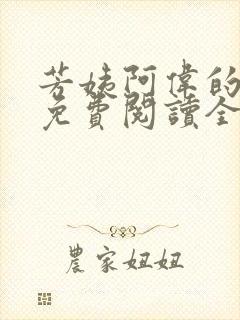 芳姨阿偉的
免費閱讀全
農家妞妞